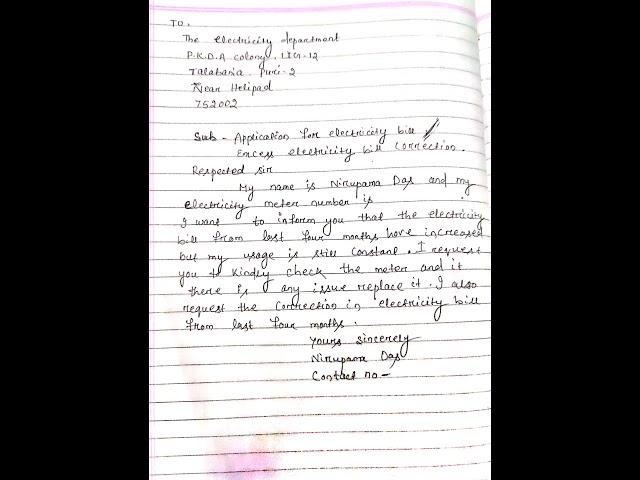 To,
The electricity department
P.K.D.A colony, LIG-12
Talabania, Puri-2
Near Helipad
752002
Sub - Application for electricity bill
Excess electricity bill correction.
Respected sir
My name is Nirupama Das and my
electricity meter number is
I want to inform you that the electricity
bill from last four months have increased
but my usage is still constant. I request
you to kindly check the meter and if
there is any issue replace it. I also
request the correction in electricity bill
from last four months.
Yours sincerely
Nirupama Das
Contact no -